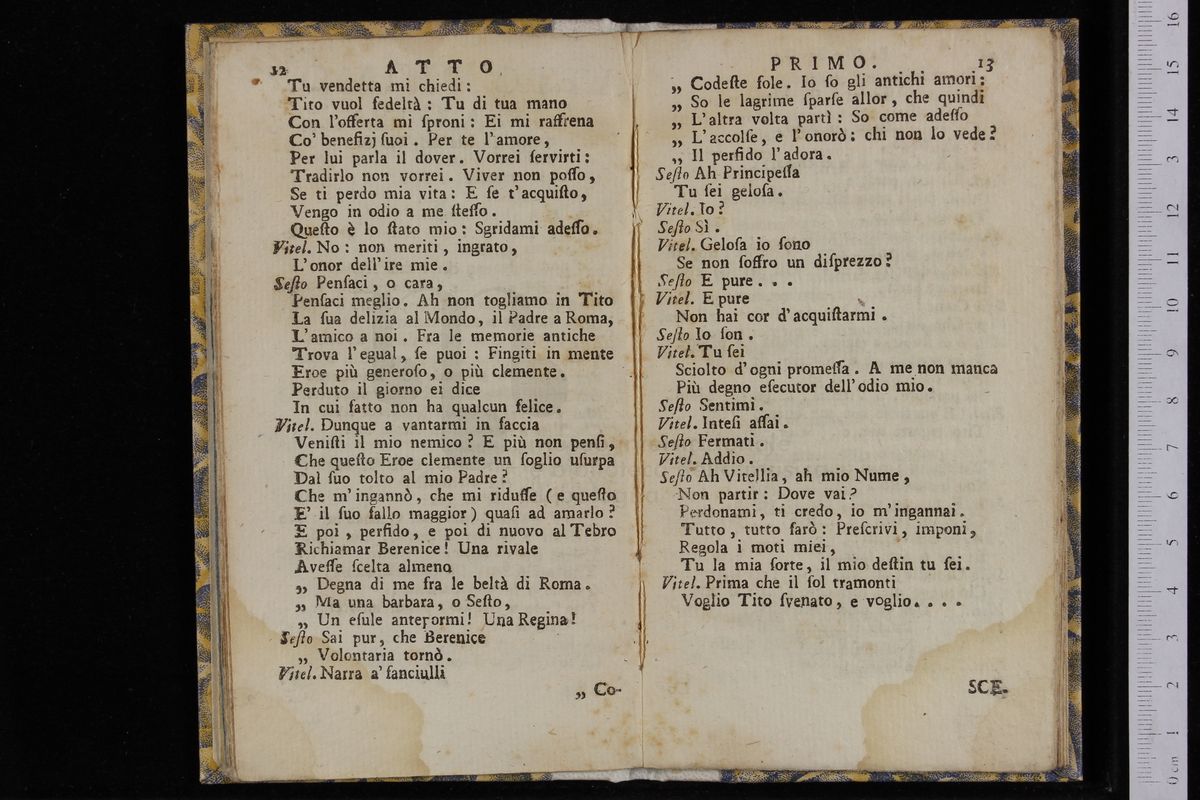 12 ATTO
Tu vendetta mi chiedi:
Tito vuol fedeltà: Tu di tua mano
Con l'offerta mi ſproni: Ei mi raffrena
Co' benefizj ſuoi. Per te l'amore,
Per lui parla il dover. Vorrei ſervirti:
Tradirlo non vorrei. Viver non poſſo,
Se ti perdo mia vita: E ſe t'acquiſto,
Vengo in odio a me ſteſſo.
Queſto è lo ſtato mio: Sgridami adeſſo.
Vitel. No: non meriti, ingrato,
L'onor dell'ire mie.
Seſto Penſaci, o cara,
Penſaci meglio. Ah non togliamo in Tito
La ſua delizia al Mondo, il Padre a Roma,
L'amico a noi. Fra le memorie antiche
Trova l'egual, ſe puoi: Fingiti in mente
Eroe più generoſo, o più clemente.
Perduto il giorno ei dice
In cui fatto non ha qualcun felice.
Vitel. Dunque a vantarmi in faccia
Veniſti il mio nemico? E più non penſi,
Che queſto Eroe clemente un ſoglio uſurpa
Dal ſuo tolto al mio Padre?
Che m'ingannò, che mi riduſſe (e queſto
E' il ſuo fallo maggior) quaſi ad amarlo?
E poi, perfido, e poi di nuovo al Tebro
Richiamar Berenice! Una rivale
Aveſſe ſcelta almeno
„ Degna di me fra le beltà di Roma.
„ Ma una barbara, o Seſto,
„ Un eſule antepormi! Una Regina!
Seſto Sai pur, che Berenice
„ Volontaria tornò.
Vitel. Narra a' fanciulli
„ Co-
PRIMO. 13
„ Codeſte fole. Io ſo gli antichi amori:
„ So le lagrime ſparſe allor, che quindi
„ L'altra volta partì: So come adeſſo
„ L'accolſe, e l'onorò: chi non lo vede?
„ Il perfido l'adora.
Seſto Ah Principeſſa
Tu ſei geloſa.
Vitel. Io?
Seſto Sì.
Vitel. Geloſa io ſono
Se non ſoffro un diſprezzo?
Seſto E pure...
Vitel. E pure
Non hai cor d'acquiſtarmi.
Seſto Io ſon.
Vitel. Tu ſei
Sciolto d'ogni promeſſa. A me non manca
Più degno eſecutor dell'odio mio.
Seſto Sentimi.
Vitel. Inteſi aſſai.
Seſto Fermati.
Vitel. Addio.
Seſto Ah Vitellia, ah mio Nume,
Non partir: Dove vai?
Perdonami, ti credo, io m'ingannai.
Tutto, tutto farò: Preſcrivi, imponi,
Regola i moti miei,
Tu la mia ſorte, il mio deſtin tu ſei.
Vitel. Prima che il ſol tramonti
Voglio Tito ſvenato, e voglio....
SCE.
0 cm 1 2 3 4 5 6 7 8 9 10 11 12 3 14 15 16